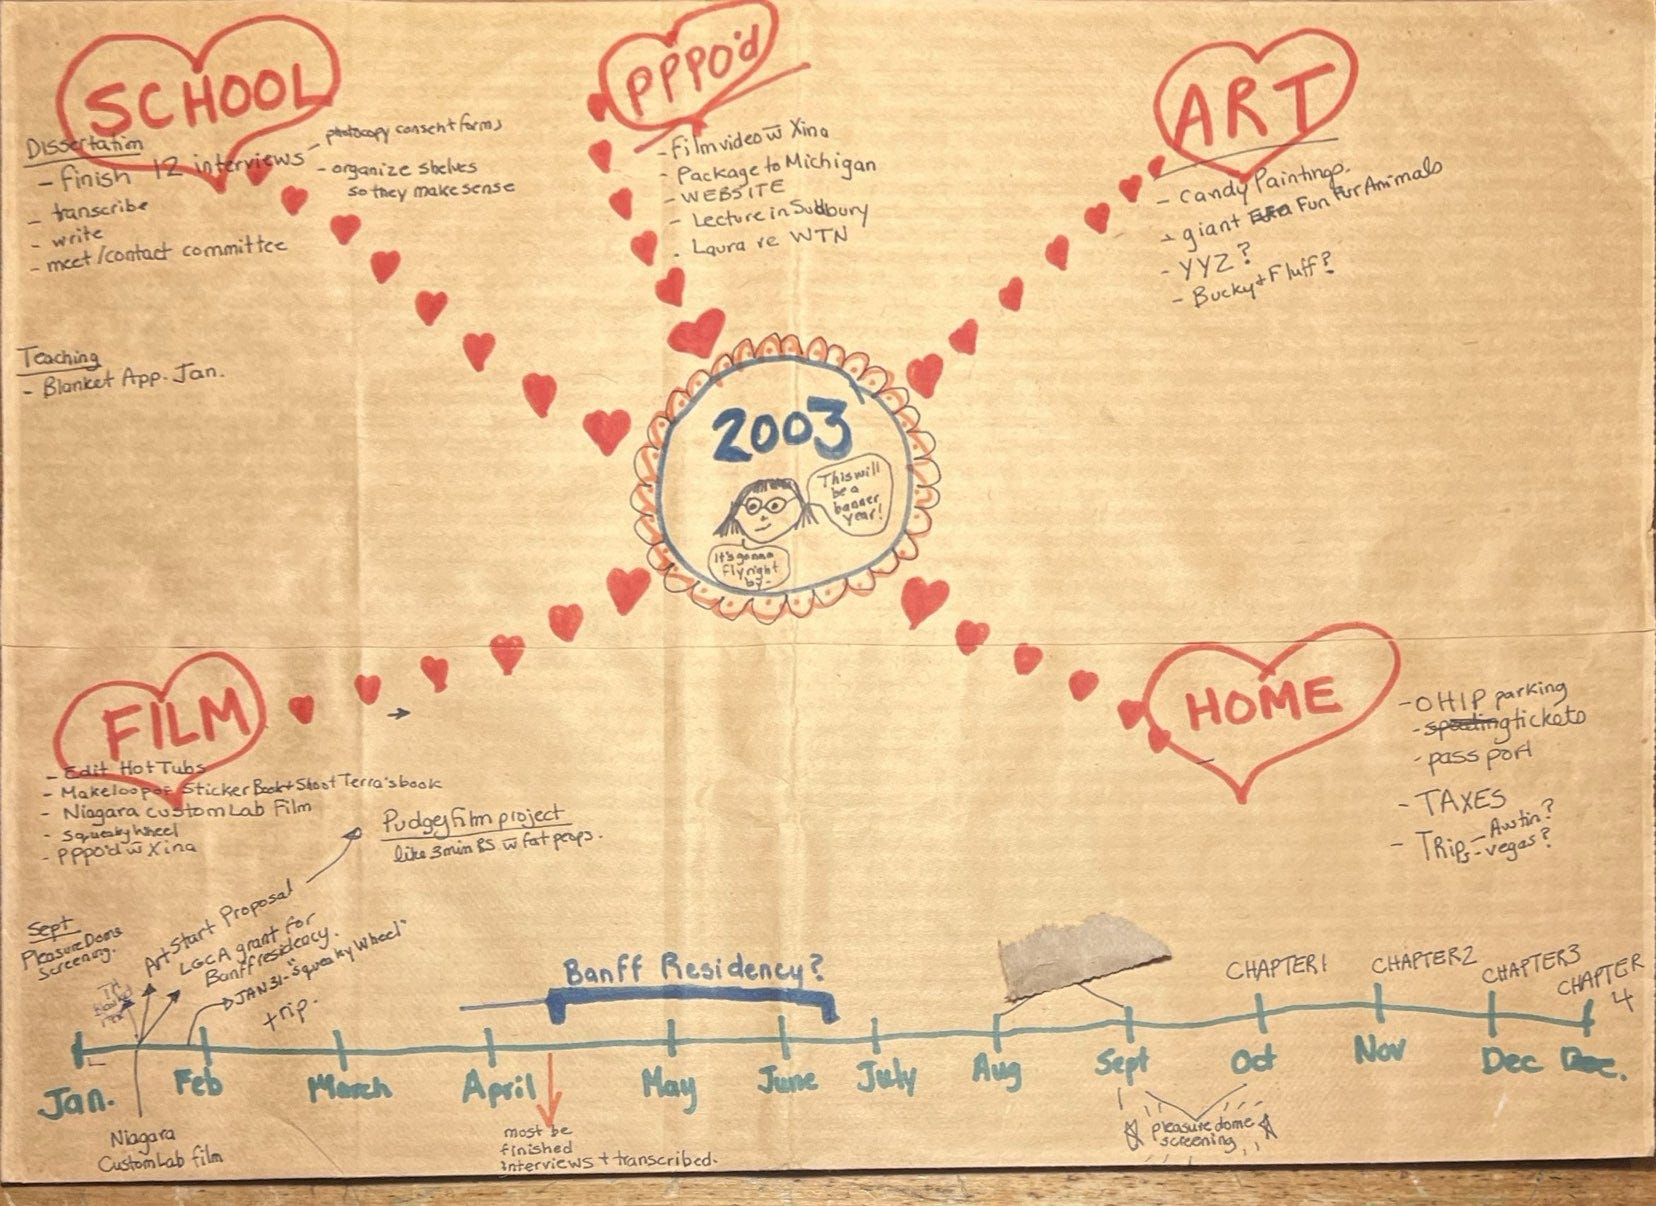 SCHOOL
Dissertation
- finish 12 interviews
- photocopy consent forms
- organize shelves
so they make sense
- transcribe
- write
- meet/contact committee
Teaching
- Blanket App. Jan.
PPPO'd
- Film video w̄ Xina
- Package to Michigan
- WEBSITE
- Lecture in Sudbury
- Laura re WTN
ART
- Candy Paintings.
- giant Fun Fur Animals
- YYZ?
- Bucky + Fluff?
2003
This will
be a
banner
year!
It's gonna
fly right
by -
FILM
- Edit Hot Tubs
- Make loop of Sticker Book + Shoot Terra's book
- Niagara custom Lab Film
- Squeaky Wheel
- PPPO'd w̄ Xina
Pudgey film project
like 3 min PS w̄ fat peeps.
HOME
- OHIP parking
- speeding tickets
- passport
- TAXES
- Trips - Austin?
- vegas?
Sept
Pleasure Dome
Screening.
Art Start Proposal
LGCA grant for
Banff residency.
JAN 31 - "squeaky wheel"
trip.
Banff Residency?
CHAPTER 1
CHAPTER 2
CHAPTER 3
CHAPTER
4
Jan.
Feb
March
April
May
June
July
Aug
Sept
Oct
Nov
Dec
Dec.
Niagara
Custom Lab film
most be
finished
interviews + transcribed.
pleasure dome
screening